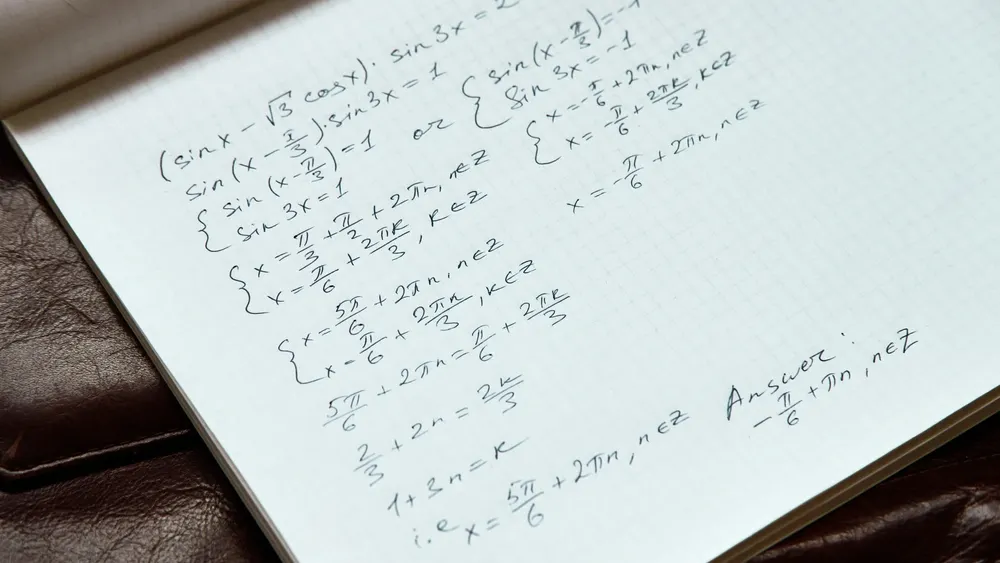 (sin x - √3 cos x) · sin 3x = 2
sin(x - π/3) · sin 3x = 1
{ sin(x - π/3) = 1
sin 3x = 1
or
{ sin(x - π/3) = -1
sin 3x = -1
{ x = π/3 + π/2 + 2πn, n∈Z
x = π/6 + 2πk/3, k∈Z
{ x = -π/6 + 2πn, n∈Z
x = -π/6 + 2πk/3, k∈Z
x = -π/6 + 2πn, n∈Z
{ x = 5π/6 + 2πn, n∈Z
x = π/6 + 2πk/3, k∈Z
5π/6 + 2πn = π/6 + 2πk/3
2/3 + 2n = 2k/3
1 + 3n = k
i.e x = 5π/6 + 2πn, n∈Z
Answer:
-π/6 + πn, n∈Z